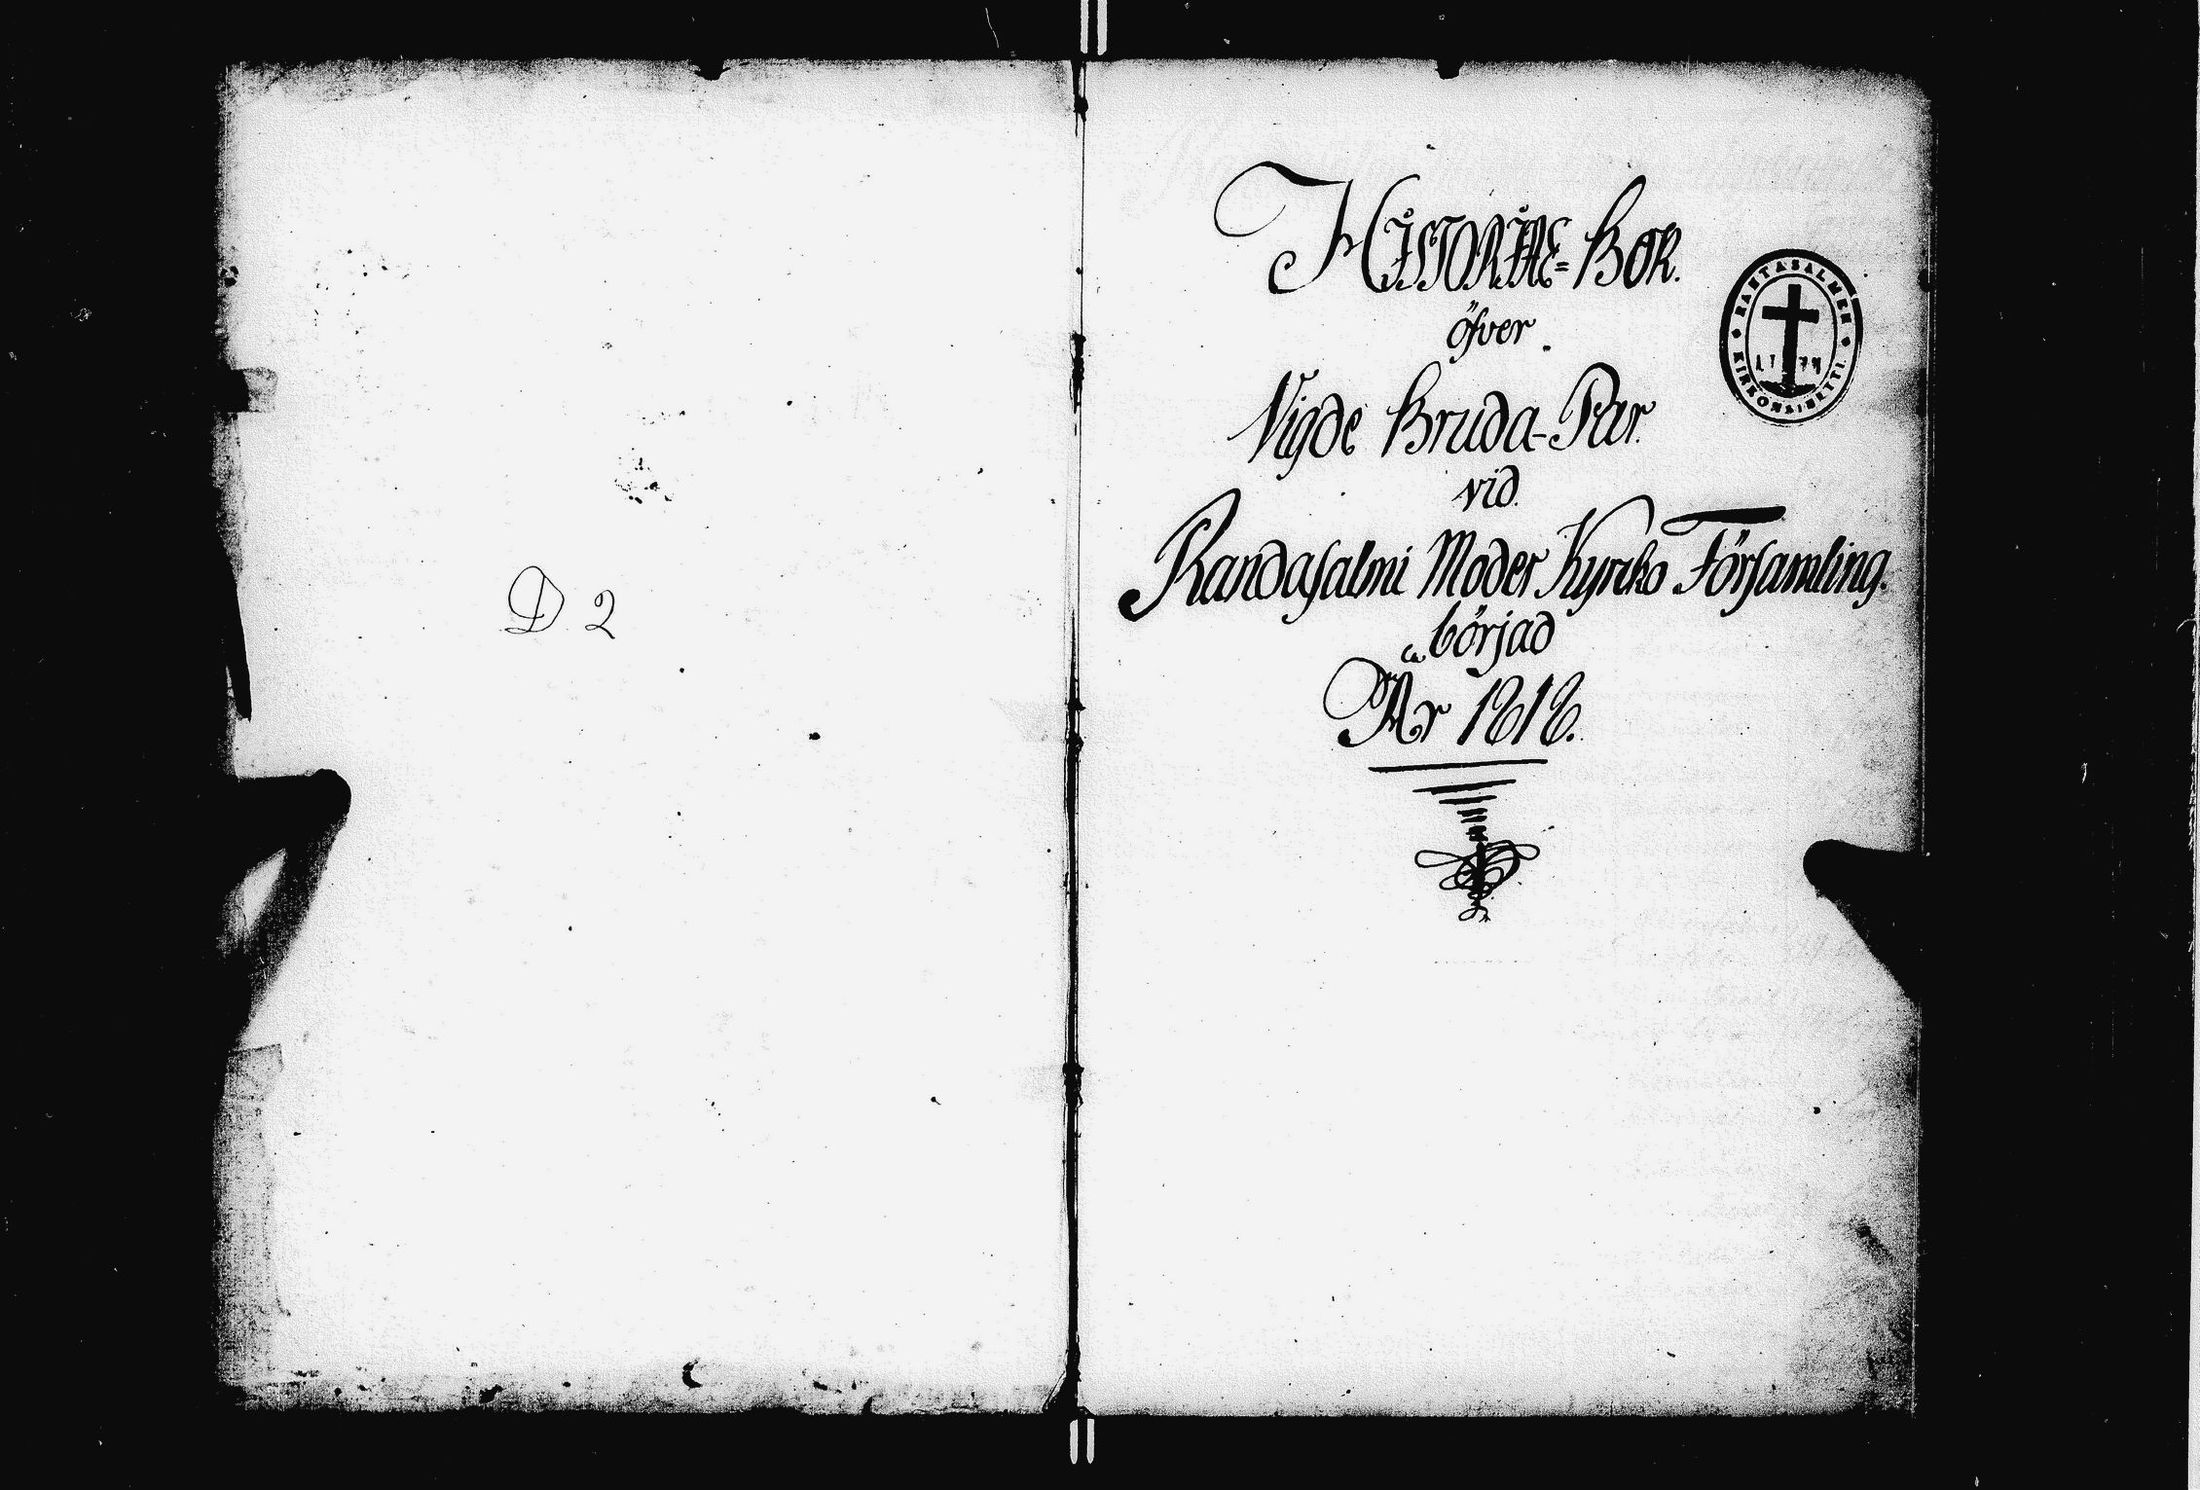 D. 2
HISTORIAE=BOK.
öfver
Vigde Bruda-Par.
vid.
Randasalmi Moder Kyrko Församling.
börjad
År 1818.
RANTASALMEN
KIRKONSINETTI.